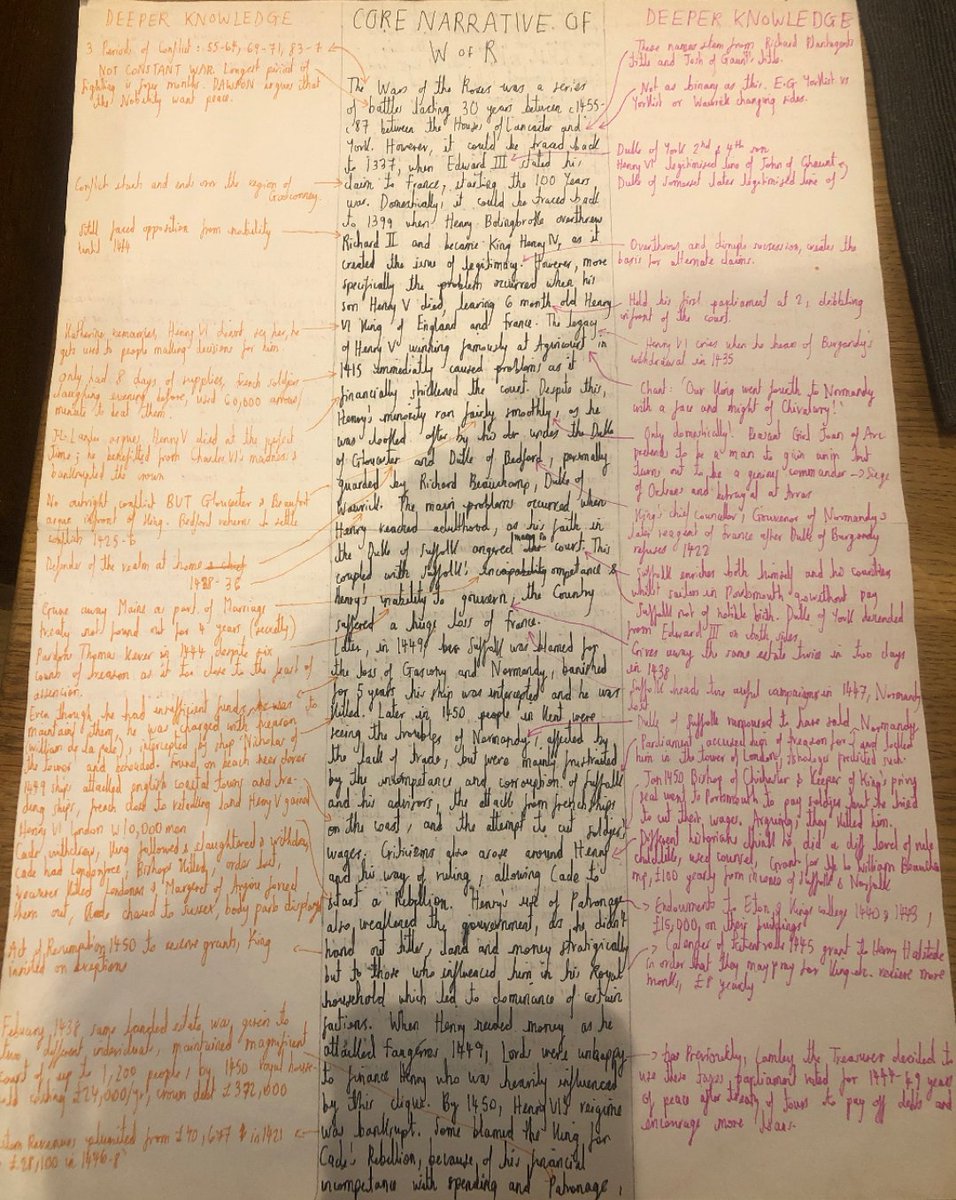 DEEPER KNOWLEDGE
3 Periods of Conflict: 55-64, 69-71, 83-7
NOT CONSTANT WAR. Longest period of
fighting is four months. DAWSON argues that
the Nobility want peace.
Conflict starts and ends over the region of
Still faced opposition from nobility
until 14
Katherine remarries, Henry VI doesnt see her, he
gets used to people making decisions for him
only had 8 days of supplies, french soldiers
laughing evening before, used 60,000 arrows/
minute to beat them.
argues, Henry V died at the perfect
time; he benefitted from Charles VI's madness &
bankrupted the crown
No outright conflict BUT Gloucester & Beaufort
argue infront of King. Bedford returns to settle
conflict 1425-6
Defender of the realm at home
36
away Maine as part of Marriage
treaty not found out for 4 years (secretly)
Pardons Thomas Kever in 1444 despite six
counts of treason as it too close to the feast of
Even though he had insufficient funds to
maintain them, he was charged with treason
(william de la pole), intercepted by ship 'Nicholas of
the tower' and beheaded. Found on beach near dover
1449 ships attacked english coastal towns and tra-
ding ships, french close to retaking land Henry V gained
Henry VI London w/10,000 men
Cade withdrew, King followed & slaughtered & withdrew,
Cade had London free, Bishop killed, order lost,
treasurer killed Londoners & Margaret of Anjou forced
them out, Cade chased to Sussex, body parts
Act of Resumption 1450 to reverse grants, King
insisted on exeptions
Febuary 1438 same landed estate was given to
two different individuals, maintained magnificent
court of up to 1,200 people, by 1450 royal house-
hold costing £24,000/yr, crown debt £372,000
Revenues from £40,677 in 1421
£28,100 in 1446-8
CORE NARRATIVE OF
W of R
The Wars of the Roses was a series
of battles lasting 30 years between c1455-
c'87 between the Houses of Lancaster and
York. However, it could be traced back
to 1337, when Edward III stated his
claim to France, starting the 100 Years
was. Domestically, it could be traced back
to 1399 when Henry Bolingbroke overthrew
Richard II and became King Henry IV, as it
created the issue of legitimacy. However, more
specifically the problem occurred when his
son Henry V died, leaving 6 month old Henry
VI King of England and France. The legacy
of Henry V winning famously at Agincourt in
1415 immediately caused problems as it
financially the court. Despite this,
Henry's minority ran fairly smoothly, as he
was looked after by his under the Duke
of Gloucester and Duke of Bedford, personally
guarded by Richard Beauchamp, Duke of
Warwick. The main problems occurred when
Henry reached adulthood, as his faith in
the Duke of Suffolk angered many in the court. This
coupled with Suffolk's incompetance &
Henry's inability to govern, the Country
suffered a huge loss of France.
Later, in 1449 Suffolk was blamed for
the loss of Gascony and Normandy, banished
for 5 years, his ship was intercepted and he was
killed. Later in 1450 people in Kent were
seeing the troubles of Normandy, affected by
the lack of trade, but were mainly frustrated
by the incompetance and corruption of Suffolk
and his advisors, the attack from french ships
on the coast, and the attempt to cut soldiers
wages. Criticisms also arose around Henry
and his way of ruling, allowing Cade to
start a Rebellion. Henry's use of Patronage
also weakened the government, as he didn't
hand out titles, land and money stratigically
but to those who influenced him in his Royal
household which led to dominance of certain
factions. When Henry needed money as he
attacked Fougeres 1449, Lords were unhappy
to finance Henry who was heavily influenced
by this clique. By 1450, Henry VI's reigime
was bankrupt. Some blamed the King for
Cade's Rebellion, because of his financial
incompetance with spending and Patronage,
DEEPER KNOWLEDGE
These names stem from Richard Plantagenets
title and John of Gaunt's title.
Not as binary as this. E.G Yorkist vs
Yorkist or Warwick changing sides.
Duke of York 2nd & 4th son
Henry VI legitimised line of John of Ghaunt &
Duke of Somerset later legitimised line of
Overthrows and disrupts succession, creates the
basis for alternate claims.
Held his first parliament at 2, dribbling
infront of the court.
Henry VI cries when he hears of Burgandy's
withdrawal in 1435
Chant: 'Our King went fourth to Normandy
with a face and might of Chivalry!'
Only domestically! Peasant Girl Joan of Arc
pretends to be a man to gain but
turns out to be a genius commander → Siege
of Orleans and betrayal at Arras
King's chief councillor, Gouvenor of Normandy &
later reagent of france after Duke of Burgandy
refuses 1422
Suffolk enriches both himself and his
whilst sailors in Portsmouth go without pay
Suffolk not of notible birth. Duke of York descended
from Edward III on both sides.
Gives away the same estate twice in two days
in 1438
Suffolk heads two awful campaigns in 1447, Normandy
lost
Duke of Suffolk rumoured to have sold Normandy,
Parliament accused him of treason for it and locked
him in the tower of London, predicted such.
Jan 1450 Bishop of Chichester & Keeper of King's privy
seal went to Portsmouth to pay soldiers but he tried
to cut their wages. Arguing, they killed him.
Different historians think he did a diff level of rule
childlike, used counsel, Grant for life to William Beaucha
mp, £100 yearly from incomes of Suffolk & Norfolk
Endowments to Eton & Kings college 1440 & 1443,
£15,000 on their buildings
Calender of Patent rolls 1445 grant to Henry Halstede
in order that they may pray for King etc. recieve more
money, £8 yearly
Previously, Lumley the Treasurer decided to
use these taxes parliament voted for 1444-49 years
of peace after treaty of tours to pay off debts and
encourage more loans.